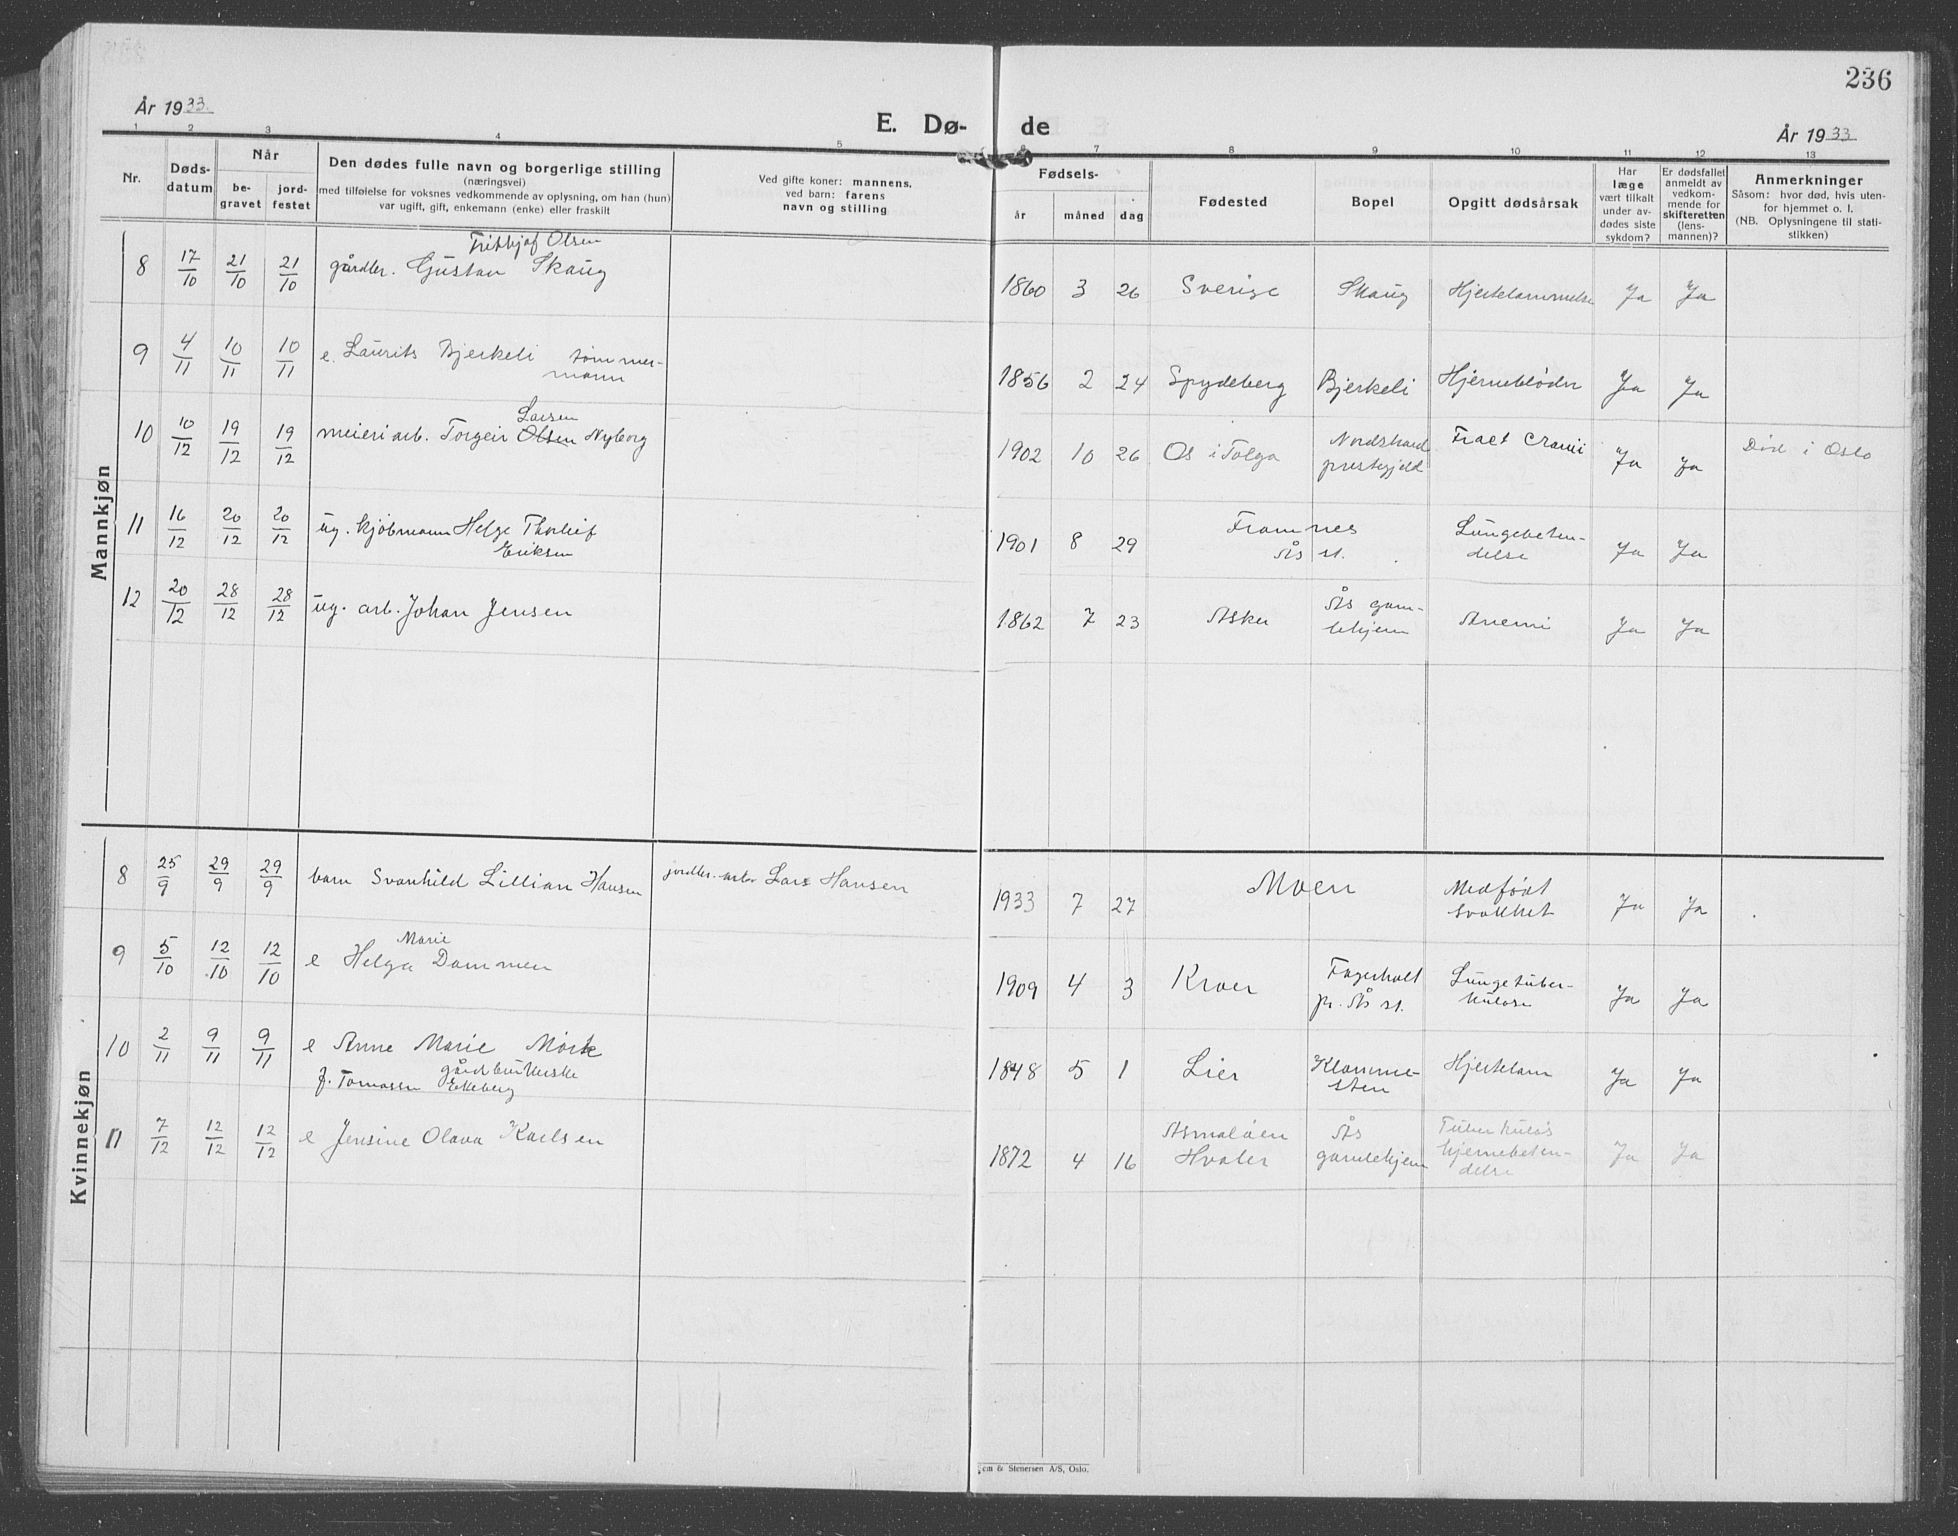 236
År 1933.
E. Dø-
de
År 1933
1 2 3 4 5 6 7 8 9 10 11 12 13
Nr.
Døds-
datum
Når
be-
gravet
jord-
festet
Den dødes fulle navn og borgerlige stilling
(næringsvei)
med tilføielse for voksnes vedkommende av oplysning, om han (hun)
var ugift, gift, enkemann (enke) eller fraskilt
Ved gifte koner: mannens,
ved barn: farens
navn og stilling
Fødsels-
år
måned
dag
Fødested
Bopel
Opgitt dødsårsak
Har
læge
vært tilkalt
under av-
dødes siste
sykdom?
Er dødsfallet
anmeldt av
vedkom-
mende for
skifteretten
(lens-
mannen)?
Anmerkninger
Såsom: hvor død, hvis uten-
for hjemmet o. l.
(NB. Oplysningene til stati-
stikken)
Mannkjøn
Frithjof Olsen
8 17/10 21/10 21/10 gårdbr. Gustav Skaug 1860 3 26 Sverige Skaug Hjertelammelse Ja Ja
9 4/11 10/11 10/11 e. Laurits Bjerkeli tømmer-
mann
1856 2 24 Spydeberg Bjerkeli Hjerneblødn Ja Ja
Larsen
10 10/12 19/12 19/12 meieriarb. Torgeir Olsen Nyborg 1902 10 26 Os i Tolga Nordstrand
prestegjeld
Fract Cranii Ja Ja Død i Oslo
11 16/12 20/12 20/12 ug. kjøbmann Helge Thorleif
Eriksen
1901 8 29 Framnes
Ås st.
Lungebeten-
delse
Ja Ja
12 20/12 28/12 28/12 ug. arb. Johan Jensen 1862 7 23 Asker Ås gam-
lehjem
Anemi Ja Ja
Kvinnekjøn
8 25/9 29/9 29/9 barn Svanhild Lillian Hansen jordbr.-arb. Lars Hansen 1933 7 27 Moen Medfødt
svakhet
Ja Ja
Marie
9 5/10 12/10 12/10 e Helga Dammen 1909 4 3 Kroer Fagerholt
pr. Ås st.
Lungetuber-
kulose
Ja Ja
10 2/11 9/11 9/11 e Anne Marie Mørk
gårdbrukerske
f. Tomassen Ekeberg
1848 5 1 Lier Klomme-
sten
Hjertelam Ja Ja
11 7/12 12/12 12/12 e Jensine Olava Karlsen 1872 4 16 Asmaløen
Hvaler
Ås
gamlehjem
Tuberkuløs
hjernebeten-
delse
Ja Ja
Sem & Stenersen A/S, Oslo.